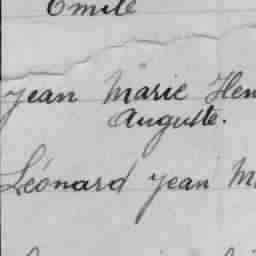 Emile
Jean Marie Hen
Auguste.
Léonard Jean M